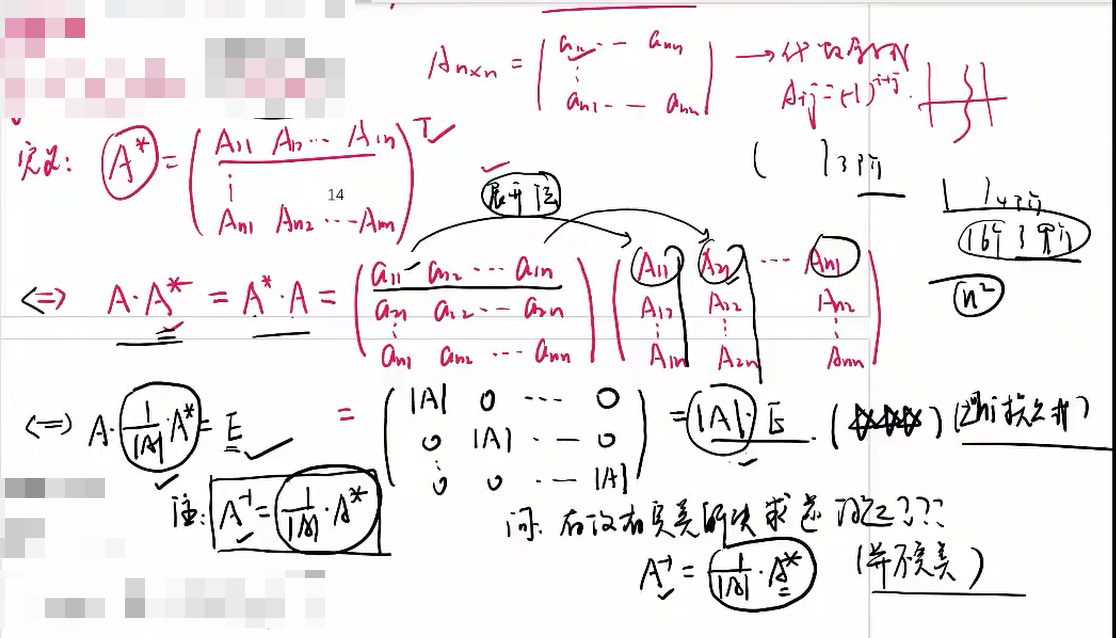 A_{n×n} = \begin{pmatrix} a_{11} ··· a_{nn} \\ ⋮ \\ a_{n1} ·-- a_{nn} \end{pmatrix} → 代数余子式
A_{ij} = (-1)^{i+j}.
定义: A* = \begin{pmatrix} A_{11} A_{12} ··· A_{1n} \\ ⋮ \\ A_{n1} A_{n2} ··· A_{nn} \end{pmatrix}^T
14
( )3阶
展开
| |4阶
16个3阶
n²
<=> A·A* = A*·A = \begin{pmatrix} a_{11} a_{12} ··· a_{1n} \\ a_{21} a_{22} ··· a_{2n} \\ ⋮ \\ a_{n1} a_{n2} ··· a_{nn} \end{pmatrix} \begin{pmatrix} A_{11} A_{21} ··· A_{n1} \\ A_{12} A_{22} A_{n2} \\ ⋮ ⋮ ⋮ \\ A_{1n} A_{2n} A_{nn} \end{pmatrix}
<=> A·\frac{1}{|A|}A* = E
= \begin{pmatrix} |A| 0 ··· 0 \\ 0 |A| ··· 0 \\ ⋮ \\ 0 0 ··· |A| \end{pmatrix} = |A|·E. (☆☆☆)
注: A^{-1} = \frac{1}{|A|}·A*
问: 有没有完美解决求逆 ???
A^{-1} = \frac{1}{|A|}·A* (并不完美)